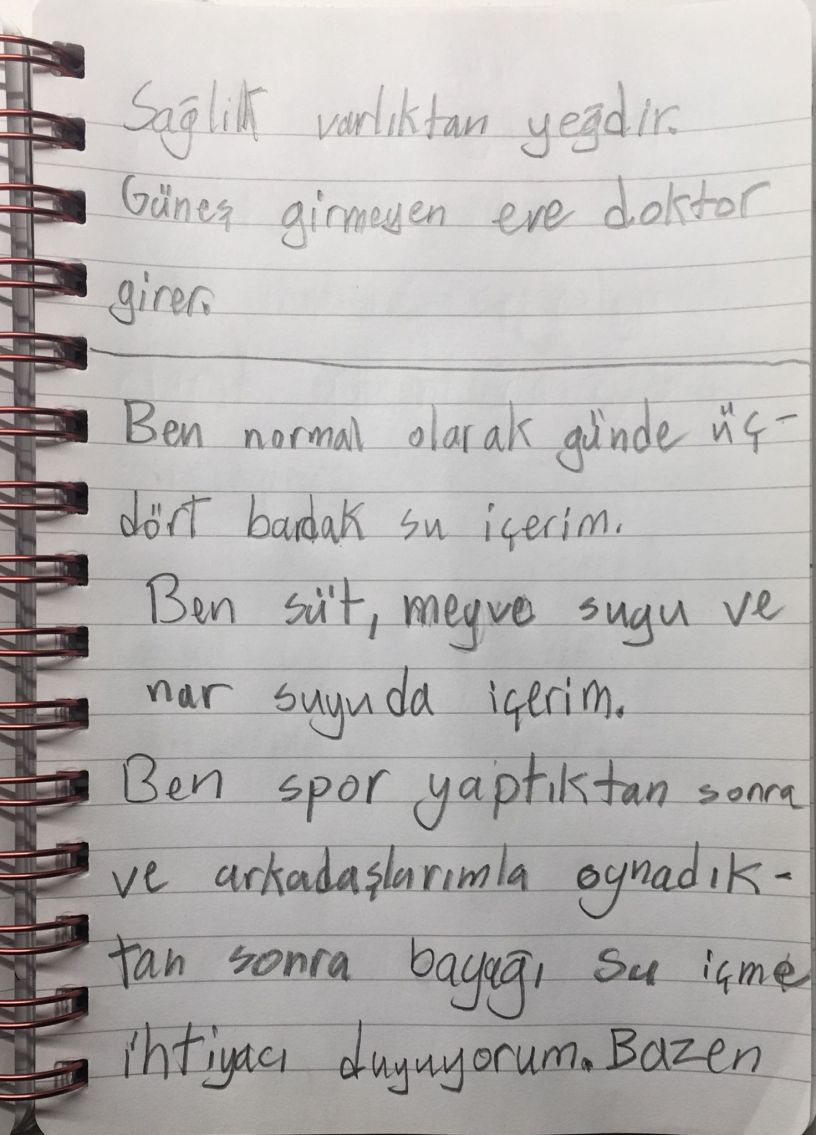 Sağlik varlıktan yeğdir.
Güneş girmeyen eve doktor
girer.
Ben normal olarak günde üç-
dört bardak su içerim.
Ben süt, meyve suyu ve
nar suyu da içerim.
Ben spor yaptıktan sonra
ve arkadaşlarımla oynadık-
tan sonra bayağı su içme
ihtiyacı duyuyorum. Bazen